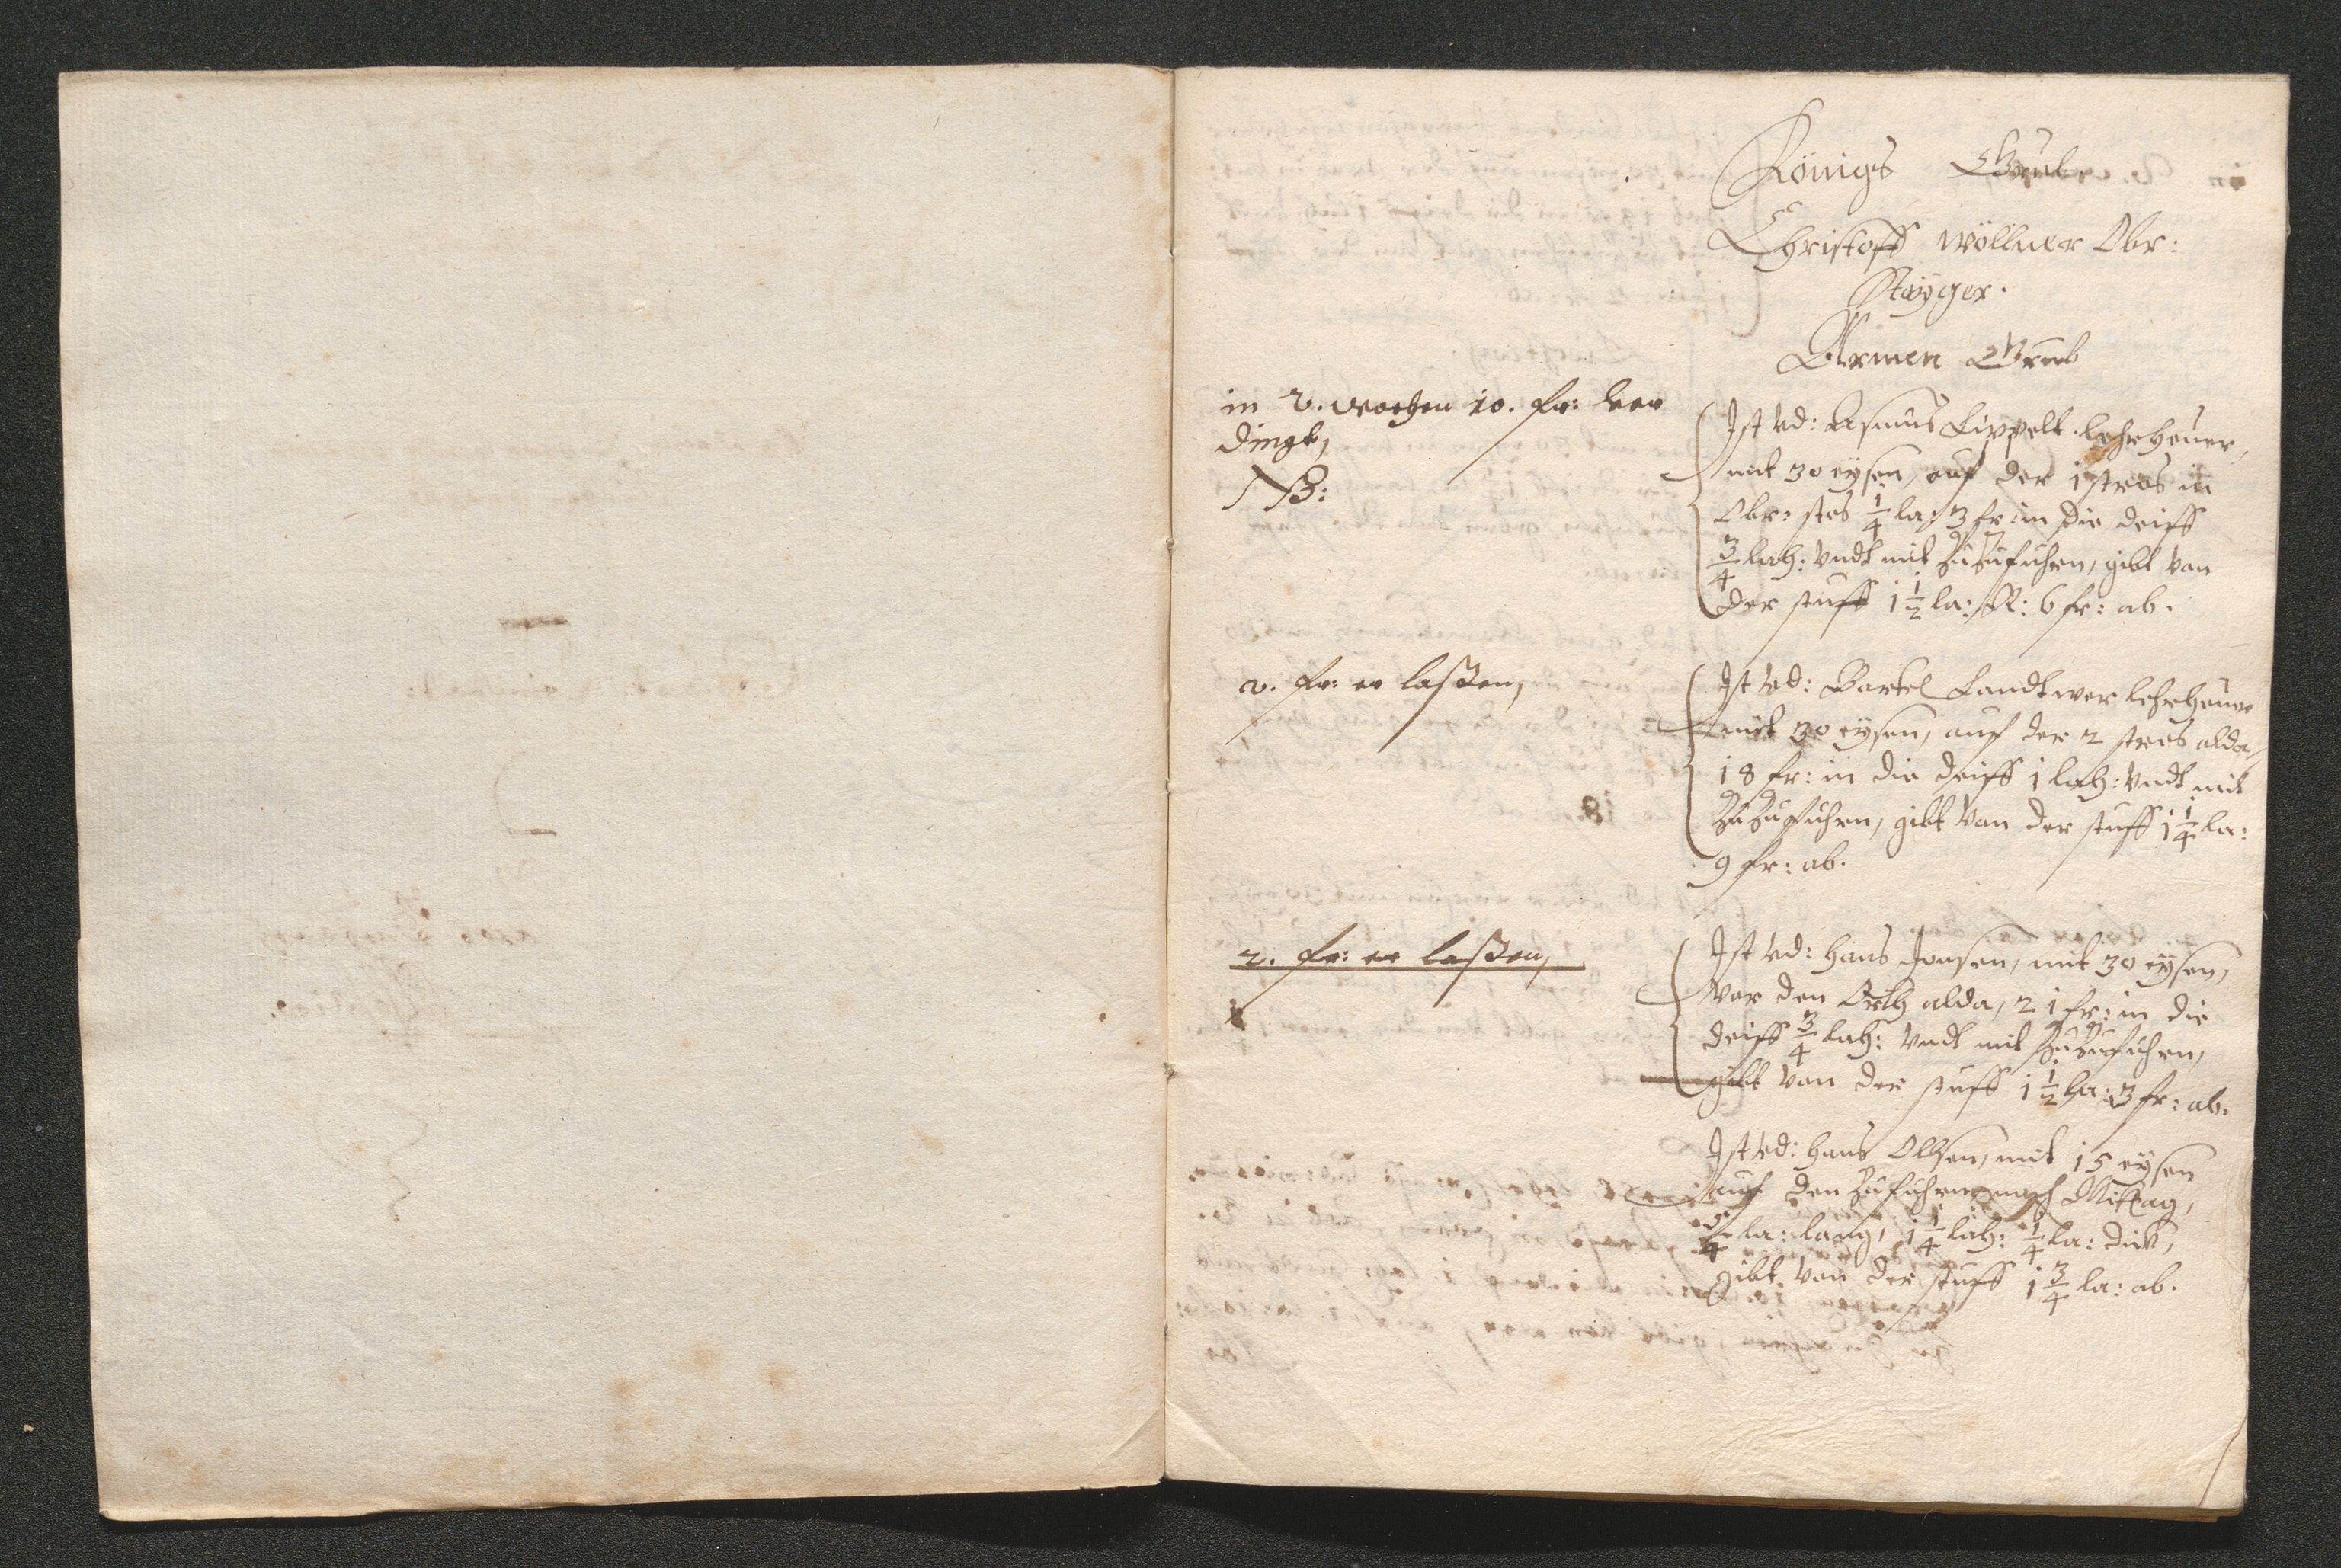 Königs Grube
Christoff Wöllner Obr:
Steyger.
Armen Grueb
in 2. wochen 10. fr: ver
dingt,
NB:
Ist vd: Asmus Lippelt lehrheuer,
mit 30 eysen, auf der 1 stros in
Obr: stes 1/4 la: 3 fr: in die deiff
3/4 lah: vndt mit Zuzufuhren, gibt van
der stuff 1 1/2 la: 6 fr: ab.
2. fr: er laßen,
Ist vd: Bartel Landtwer lehrheuer
mit 30 eysen, auf der 2 stros alda,
18 fr: in die deiff 1 lah: vndt mit
Zuzufuhren, gibt van der stuff 1 1/4 la:
9 fr: ab.
2. fr: er laßen,
Ist vd: Hans Jonsen, mit 30 eysen,
Vor den Orth alda, 21 fr: in die
deiff 3/4 lah: vndt mit Zuzufuhren,
gibt van der stuff 1 1/2 la: 3 fr: ab.
Ist vd: Hans Olsen, mit 15 eysen
auf den Zufuhren nach Mittag,
la: lang, 1 1/4 lah: 1/4 la: dick,
gibt van der stuff 1 3/4 la: ab.